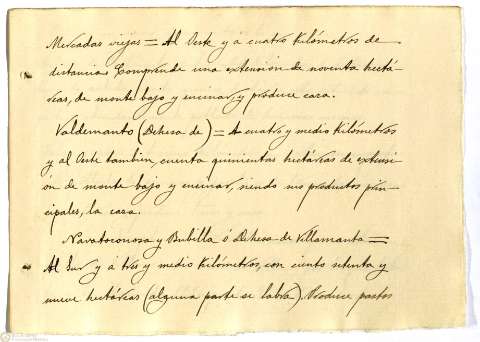 Mercadas viejas = Al Oeste y á cuatro kilómetros de
distancia. Comprende una extensión de noventa hectá-
reas, de monte bajo y encinar, y produce caza.
Valdemanto (Dehesa de) = A cuatro y medio kilómetros
y al Oeste tambien, cuenta quinientas hectáreas de extensi-
ón de monte bajo y encinar, siendo sus productos prin-
cipales, la caza.
Navatoconosa y Bubilla ó Dehesa de Villamanta =
Al Sur y á tres y medio kilómetros, con ciento setenta y
nueve hectáreas (alguna parte se labra). Produce pastos